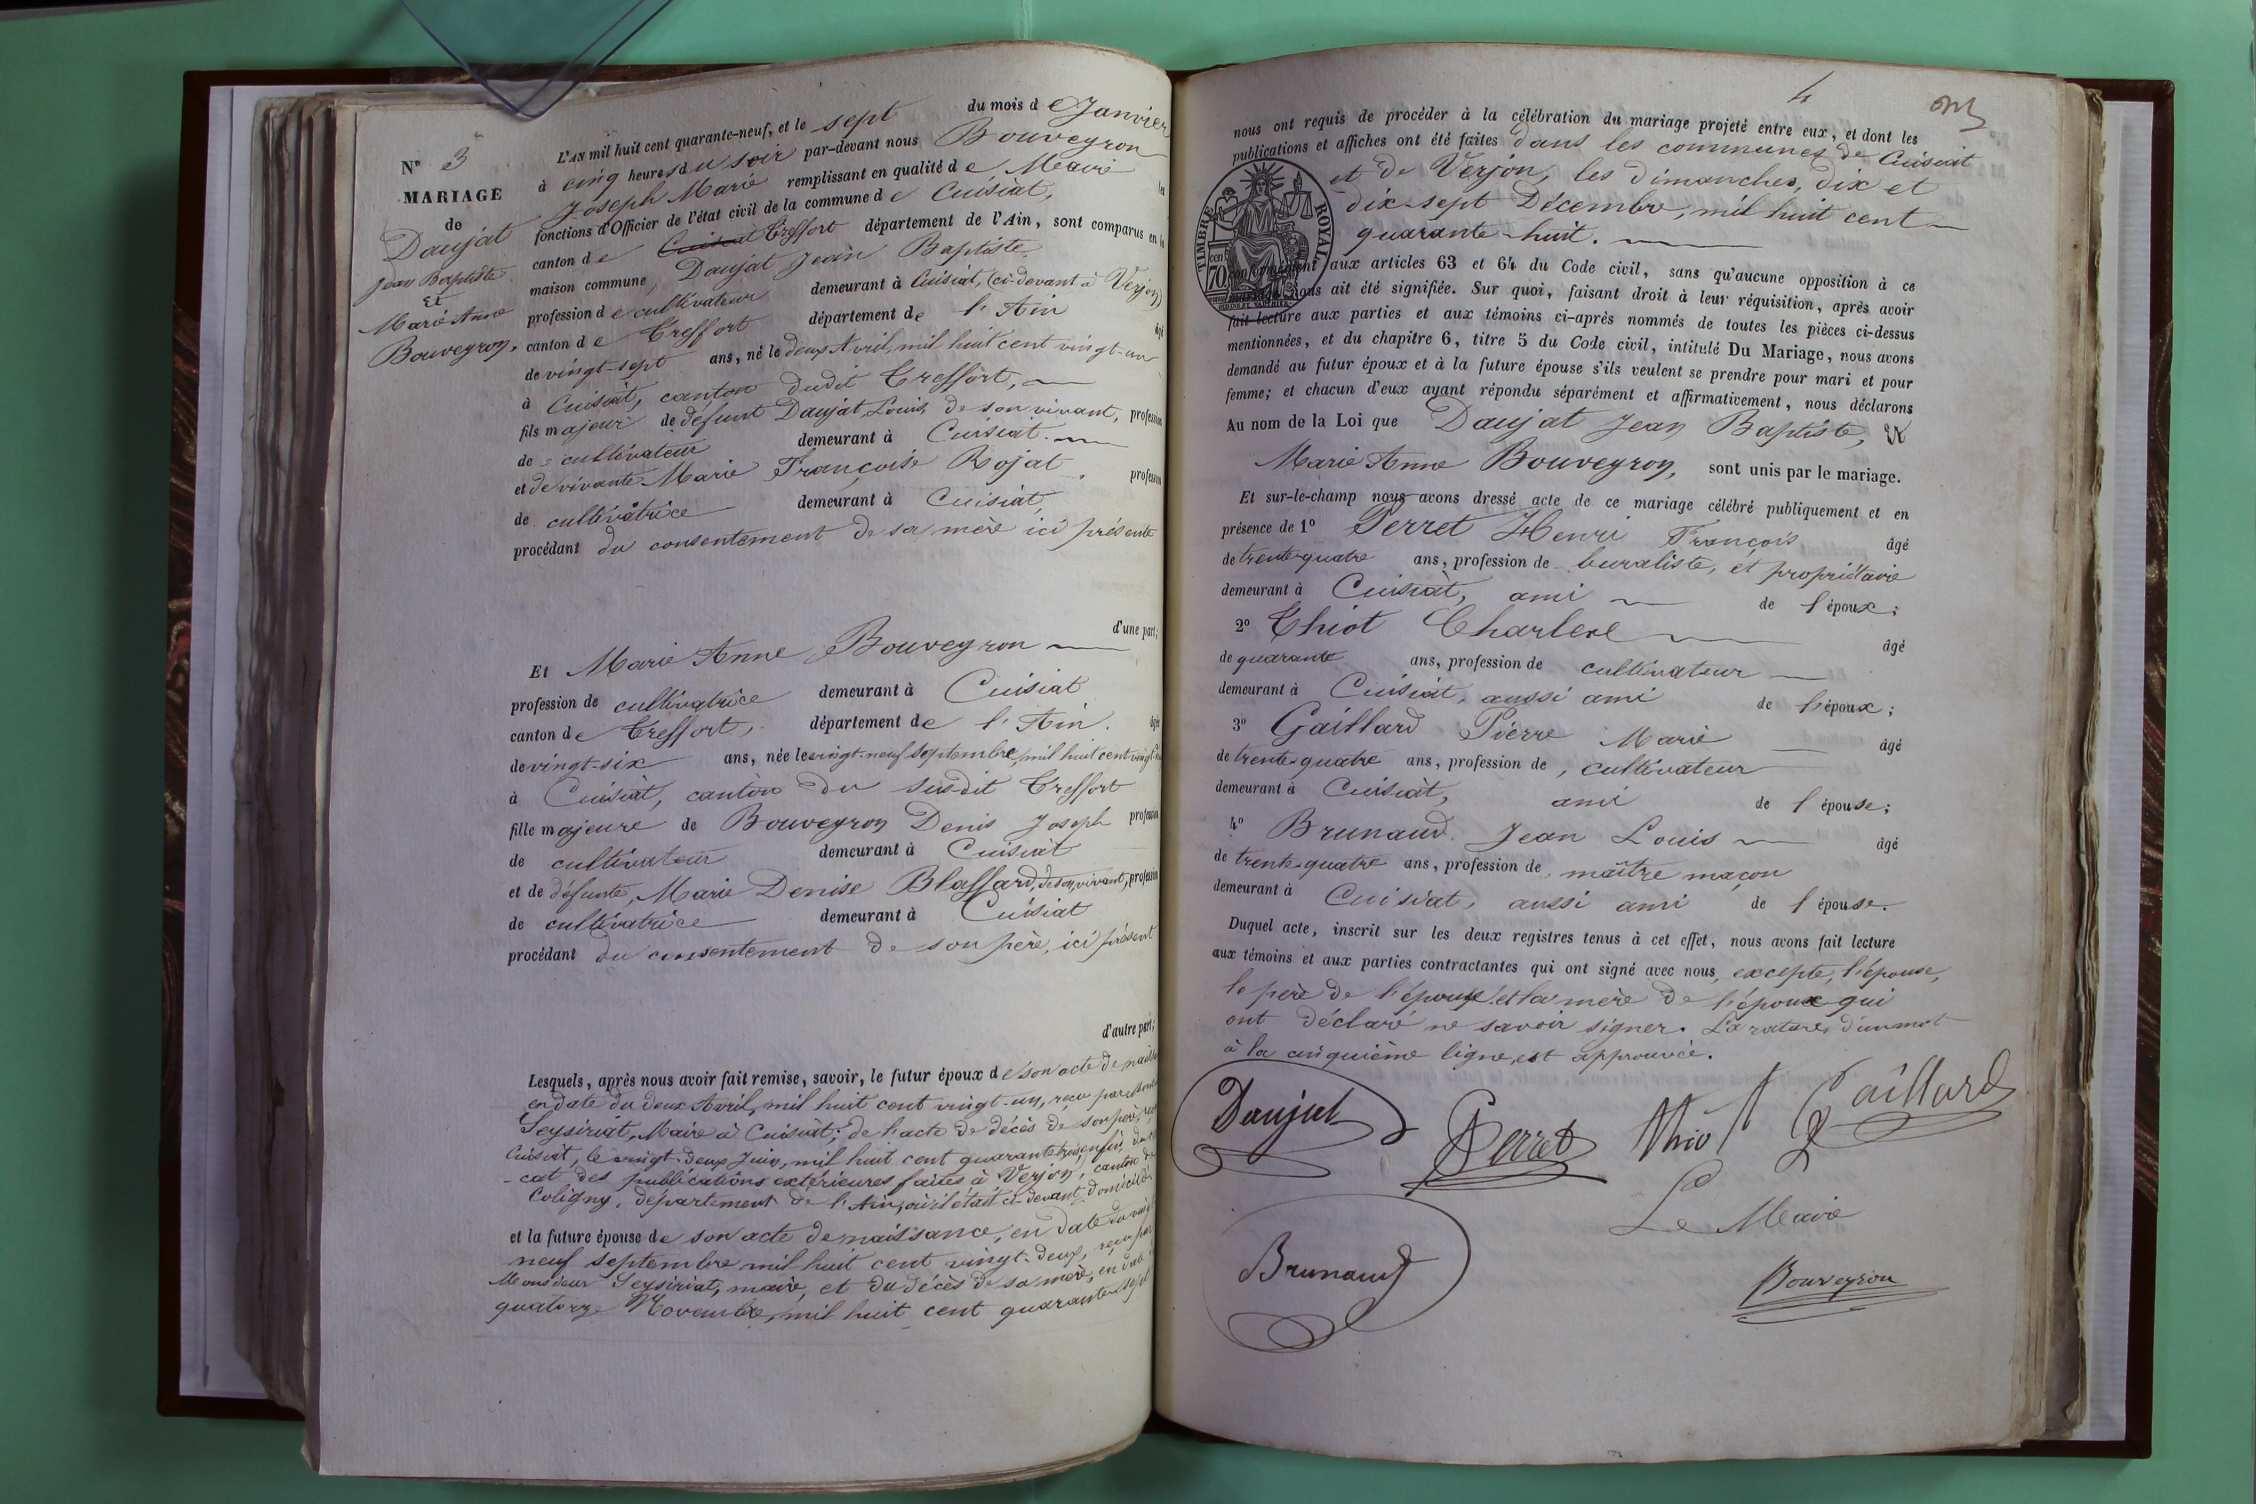 N° 3
MARIAGE
de
Daujat
Jean Baptiste
et
Marie Anne
Bouveyron.
L'AN mil huit cent quarante-neuf, et le sept du mois de Janvier
à cinq heures du soir par-devant nous Bouveyron
Joseph Marie remplissant en qualité de Maire les
fonctions d'Officier de l'état civil de la commune de Cuisiat,
canton de Cuisiat Treffort département de l'Ain, sont comparus en la
maison commune, Daujat Jean Baptiste
profession de cultivateur demeurant à Cuisiat, (ci-devant à Verjon)
canton de Treffort département de l'Ain âgé
de vingt-sept ans, né le deux Avril, mil huit cent vingt-un
à Cuisiat, canton dudit Treffort,
fils majeur de défunt Daujat Louis, de son vivant, profession
de cultivateur demeurant à Cuisiat.
et de vivante Marie Françoise Rojat profession
de cultivatrice demeurant à Cuisiat,
procédant du consentement de sa mère ici présente
d'une part;
Et Marie Anne Bouveyron
profession de cultivatrice demeurant à Cuisiat
canton de Treffort, département de l'Ain. âgée
de vingt-six ans, née le vingt-neuf septembre, mil huit cent vingt
à Cuisiat, canton du susdit Treffort
fille majeure de Bouveyron Denis Joseph profession
de cultivateur demeurant à Cuisiat
et de défunte, Marie Denise Blaffard, de son vivant, profession
de cultivatrice demeurant à Cuisiat
procédant du consentement de son père, ici présent
d'autre part;
Lesquels, après nous avoir fait remise, savoir, le futur époux de son acte de
en date du deux Avril, mil huit cent vingt-un, reçu par
Seysiriat, Maire à Cuisiat; de l'acte de décès de son père,
Cuisiat, le vingt-deux Juin, mil huit cent quarante trois, enfin du
-cat des publications extérieures faites à Verjon, canton de
Coligny, département de l'Ain, où il était ci-devant domicilié
et la future épouse de son acte de naissance, en date du vingt
neuf septembre mil huit cent vingt-deux, reçu par
Monsieur Seysiriat, maire, et du décès de sa mère, en date
quatorze Novembre, mil huit cent quarante-sept
4
nous ont requis de procéder à la célébration du mariage projeté entre eux, et dont les
publications et affiches ont été faites dans les communes de Cuisiat
et de Verjon, les dimanches, dix et
dix-sept Décembre, mil huit cent
quarante-huit.
TIMBRE ROYAL
70
conformément aux articles 63 et 64 du Code civil, sans qu'aucune opposition à ce
mariage nous ait été signifiée. Sur quoi, faisant droit à leur réquisition, après avoir
fait lecture aux parties et aux témoins ci-après nommés de toutes les pièces ci-dessus
mentionnées, et du chapitre 6, titre 5 du Code civil, intitulé Du Mariage, nous avons
demandé au futur époux et à la future épouse s'ils veulent se prendre pour mari et pour
femme; et chacun d'eux ayant répondu séparément et affirmativement, nous déclarons
Au nom de la Loi que Daujat Jean Baptiste, et
Marie Anne Bouveyron, sont unis par le mariage.
Et sur-le-champ nous avons dressé acte de ce mariage célébré publiquement et en
présence de 1° Perret Henri François âgé
de trente-quatre ans, profession de buraliste, et propriétaire
demeurant à Cuisiat, ami de l'époux;
2° Thiot Charlene âgé
de quarante ans, profession de cultivateur
demeurant à Cuisiat, aussi ami de l'époux;
3° Gaillard Pierre Marie âgé
de trente-quatre ans, profession de, cultivateur
demeurant à Cuisiat, ami de l'épouse;
4° Brunaud Jean Louis âgé
de trente-quatre ans, profession de, maître maçon
demeurant à Cuisiat, aussi ami de l'épouse.
Duquel acte, inscrit sur les deux registres tenus à cet effet, nous avons fait lecture
aux témoins et aux parties contractantes qui ont signé avec nous, excepté, l'épouse,
le père de l'épouse et la mère de l'époux qui
ont déclaré ne savoir signer. La rature, d'un mot
à la cinquième ligne, est approuvée.
Daujat Perret Thiot Gaillard
Le Maire
Brunaud
Bouveyron